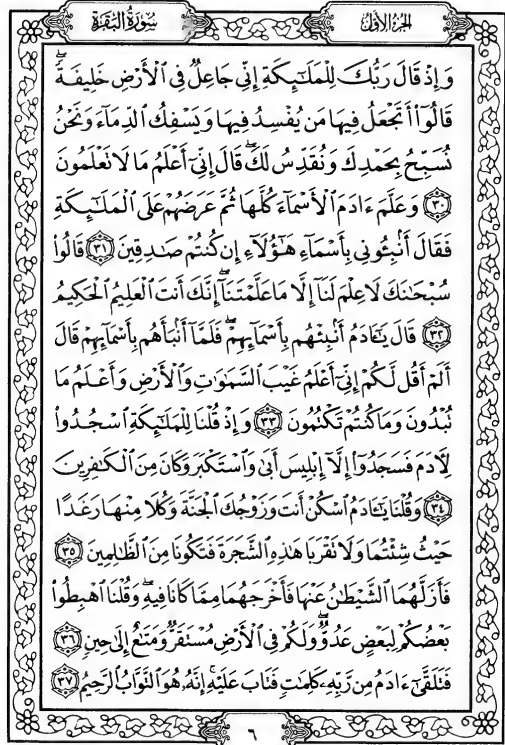 الجزء الأول
سورة البقرة
وَإِذْ قَالَ رَبُّكَ لِلْمَلَٰٓئِكَةِ إِنِّي جَاعِلٌ فِي ٱلْأَرْضِ خَلِيفَةًۖ
قَالُوٓا۟ أَتَجْعَلُ فِيهَا مَن يُفْسِدُ فِيهَا وَيَسْفِكُ ٱلدِّمَآءَ وَنَحْنُ
نُسَبِّحُ بِحَمْدِكَ وَنُقَدِّسُ لَكَۖ قَالَ إِنِّيٓ أَعْلَمُ مَا لَا تَعْلَمُونَ
﴿٣٠﴾ وَعَلَّمَ ءَادَمَ ٱلْأَسْمَآءَ كُلَّهَا ثُمَّ عَرَضَهُمْ عَلَى ٱلْمَلَٰٓئِكَةِ
فَقَالَ أَنۢبِـُٔونِي بِأَسْمَآءِ هَٰٓؤُلَآءِ إِن كُنتُمْ صَٰدِقِينَ ﴿٣١﴾ قَالُوا۟
سُبْحَٰنَكَ لَا عِلْمَ لَنَآ إِلَّا مَا عَلَّمْتَنَآۖ إِنَّكَ أَنتَ ٱلْعَلِيمُ ٱلْحَكِيمُ
﴿٣٢﴾ قَالَ يَٰٓـَٔادَمُ أَنۢبِئْهُم بِأَسْمَآئِهِمْۖ فَلَمَّآ أَنۢبَأَهُم بِأَسْمَآئِهِمْ قَالَ
أَلَمْ أَقُل لَّكُمْ إِنِّيٓ أَعْلَمُ غَيْبَ ٱلسَّمَٰوَٰتِ وَٱلْأَرْضِ وَأَعْلَمُ مَا
تُبْدُونَ وَمَا كُنتُمْ تَكْتُمُونَ ﴿٣٣﴾ وَإِذْ قُلْنَا لِلْمَلَٰٓئِكَةِ ٱسْجُدُوا۟
لِـَٔادَمَ فَسَجَدُوٓا۟ إِلَّآ إِبْلِيسَ أَبَىٰ وَٱسْتَكْبَرَ وَكَانَ مِنَ ٱلْكَٰفِرِينَ
﴿٣٤﴾ وَقُلْنَا يَٰٓـَٔادَمُ ٱسْكُنْ أَنتَ وَزَوْجُكَ ٱلْجَنَّةَ وَكُلَا مِنْهَا رَغَدًا
حَيْثُ شِئْتُمَا وَلَا تَقْرَبَا هَٰذِهِ ٱلشَّجَرَةَ فَتَكُونَا مِنَ ٱلظَّٰلِمِينَ ﴿٣٥﴾
فَأَزَلَّهُمَا ٱلشَّيْطَٰنُ عَنْهَا فَأَخْرَجَهُمَا مِمَّا كَانَا فِيهِۖ وَقُلْنَا ٱهْبِطُوا۟
بَعْضُكُمْ لِبَعْضٍ عَدُوٌّۖ وَلَكُمْ فِي ٱلْأَرْضِ مُسْتَقَرٌّ وَمَتَٰعٌ إِلَىٰ حِينٍ ﴿٣٦﴾
فَتَلَقَّىٰٓ ءَادَمُ مِن رَّبِّهِۦ كَلِمَٰتٍ فَتَابَ عَلَيْهِۚ إِنَّهُۥ هُوَ ٱلتَّوَّابُ ٱلرَّحِيمُ ﴿٣٧﴾
٦